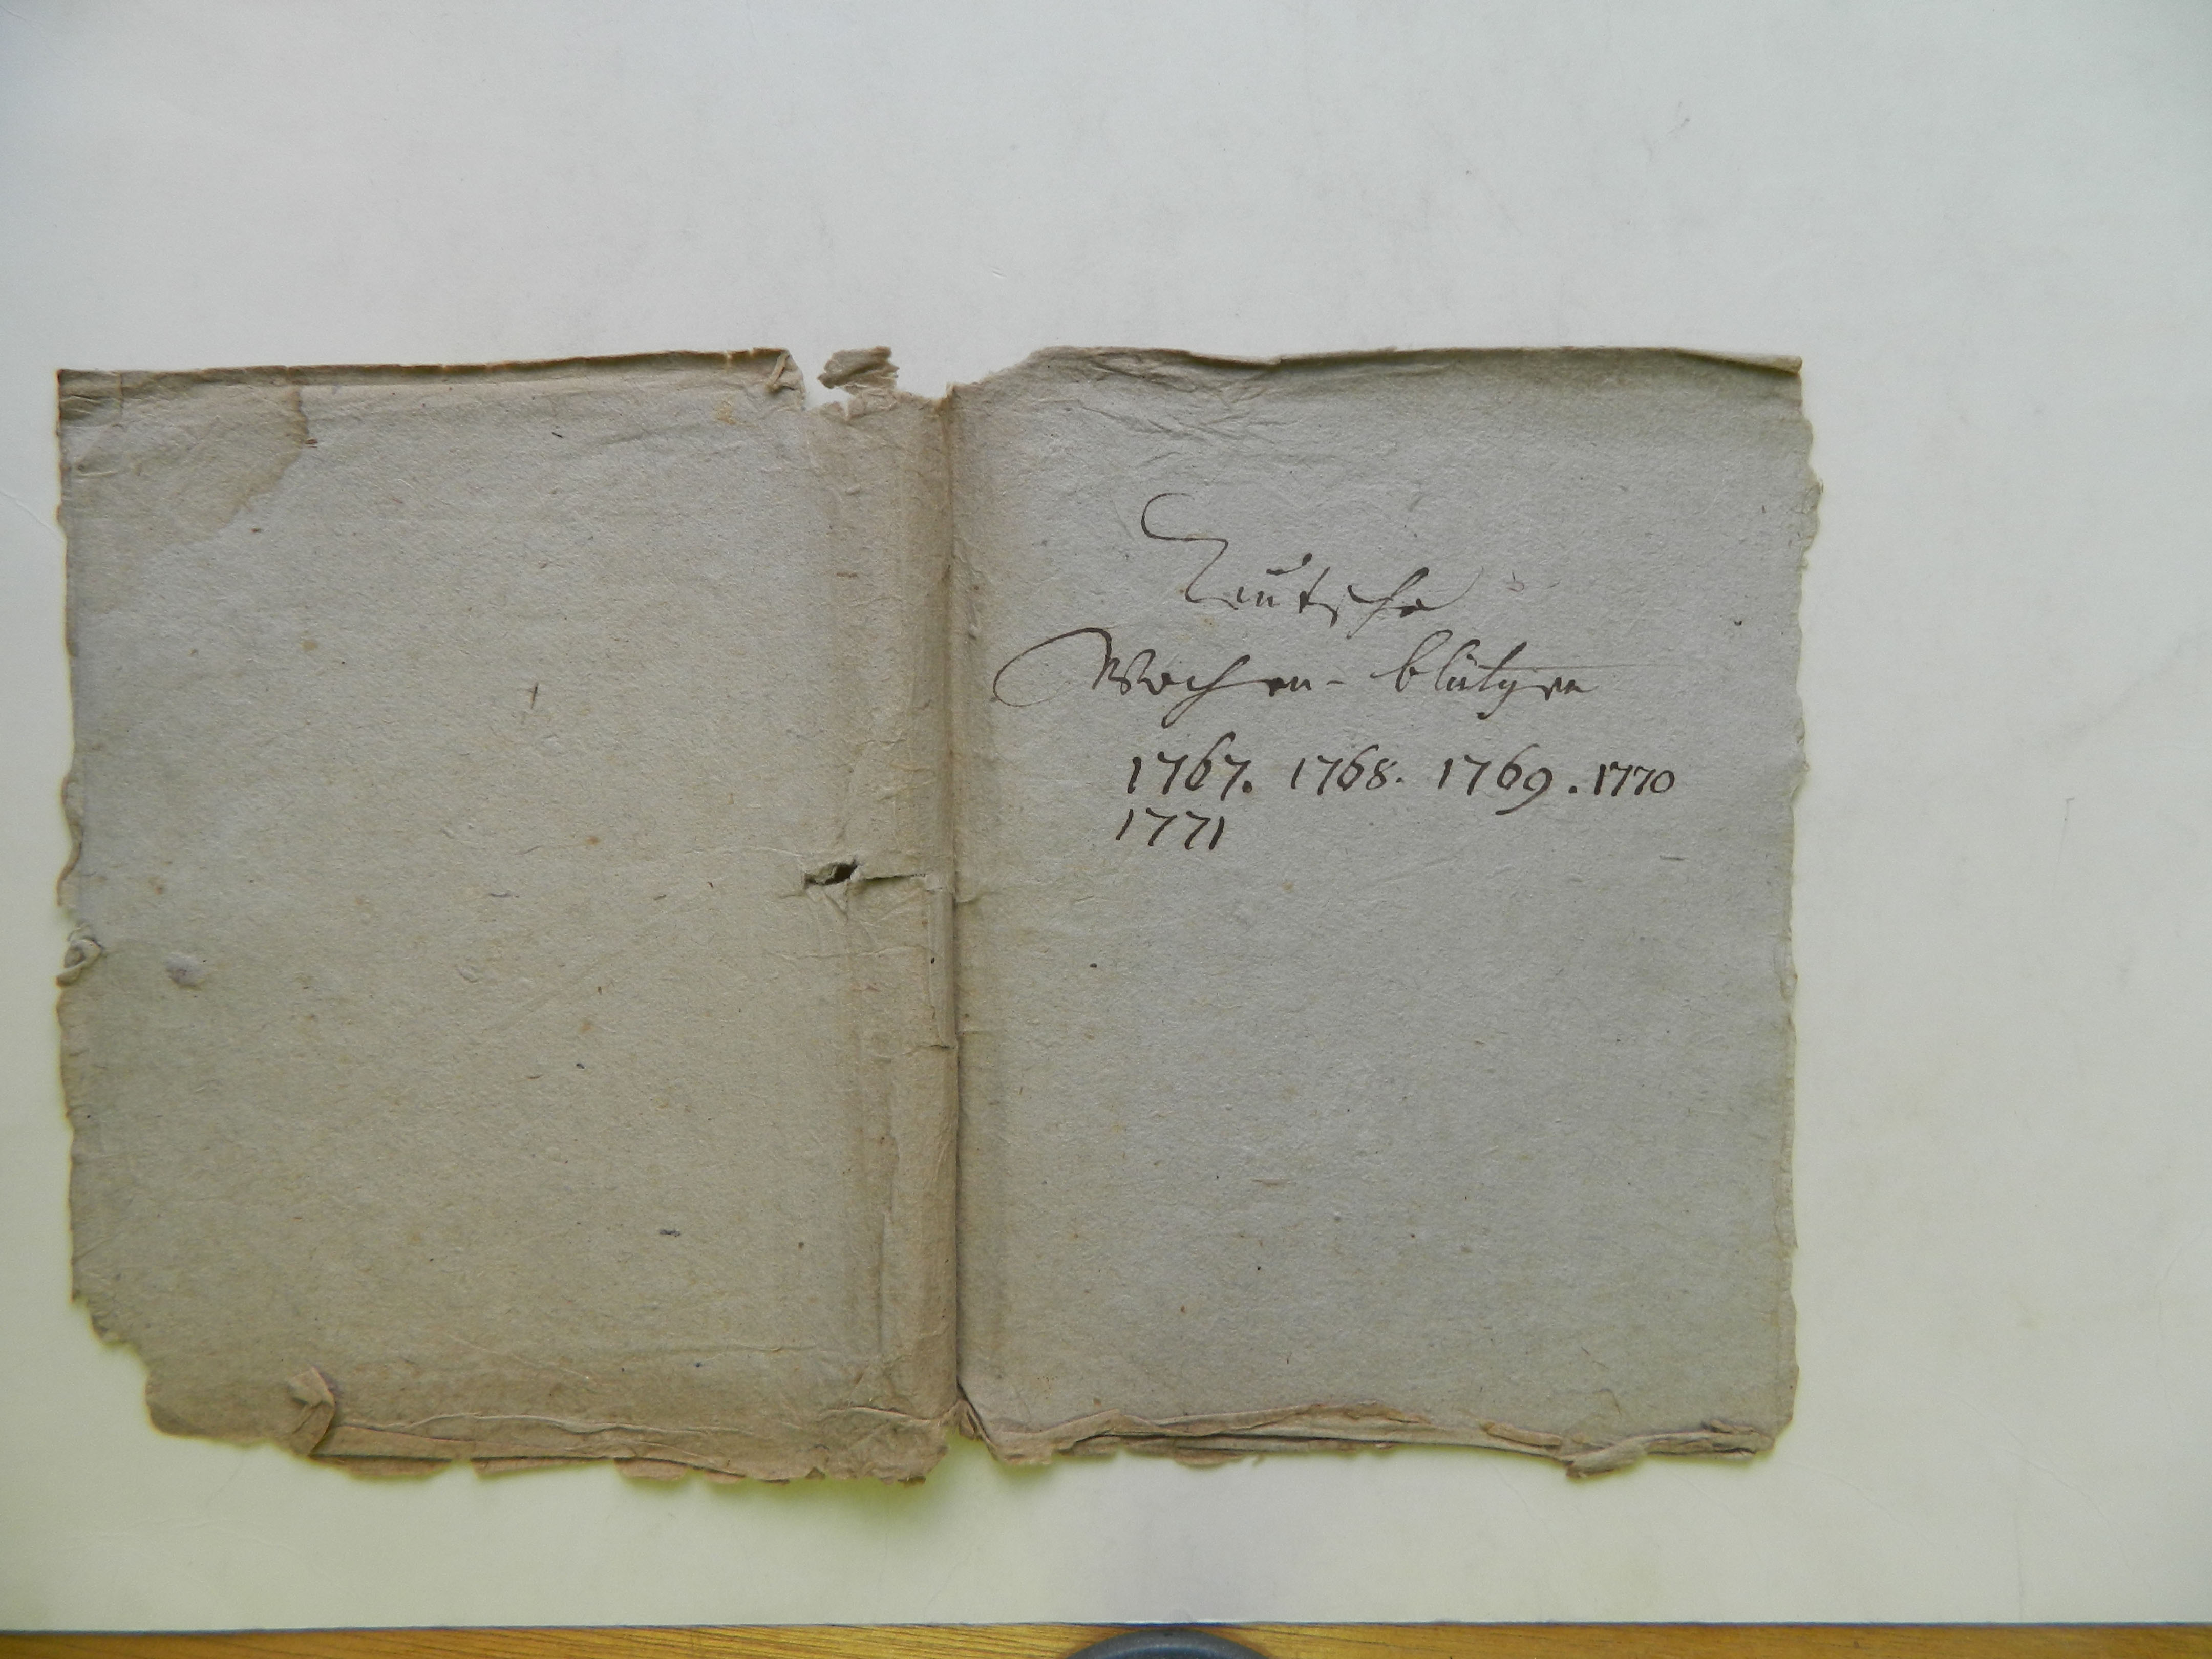 Teütsche
Wochen- blätgen
1767. 1768. 1769. 1770
1771